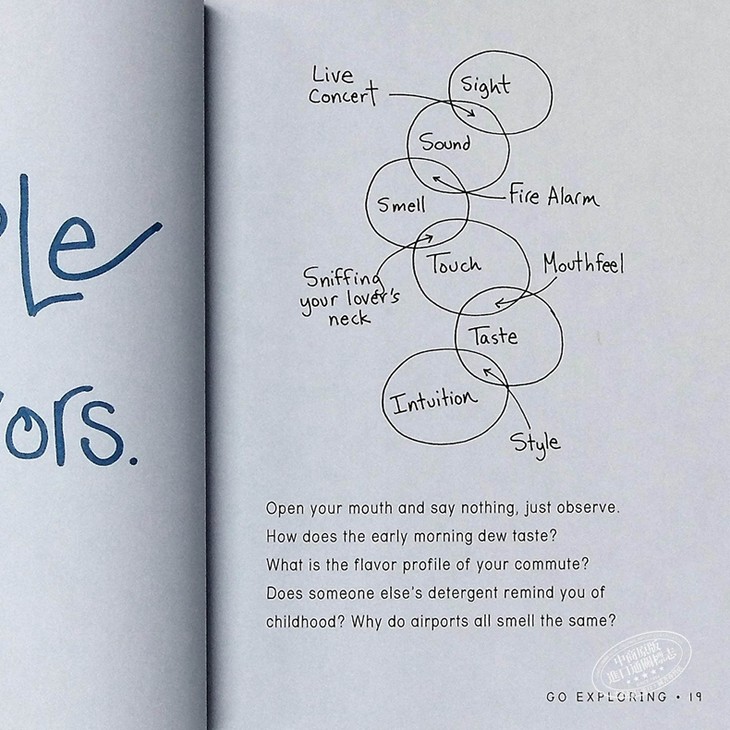 Le
ors.
Live
Concert
Sight
Sound
Smell
Fire Alarm
Touch
Mouthfeel
Sniffing
your lover's
neck
Taste
Intuition
Style
Open your mouth and say nothing, just observe.
How does the early morning dew taste?
What is the flavor profile of your commute?
Does someone else's detergent remind you of
childhood? Why do airports all smell the same?
GO EXPLORING • 19